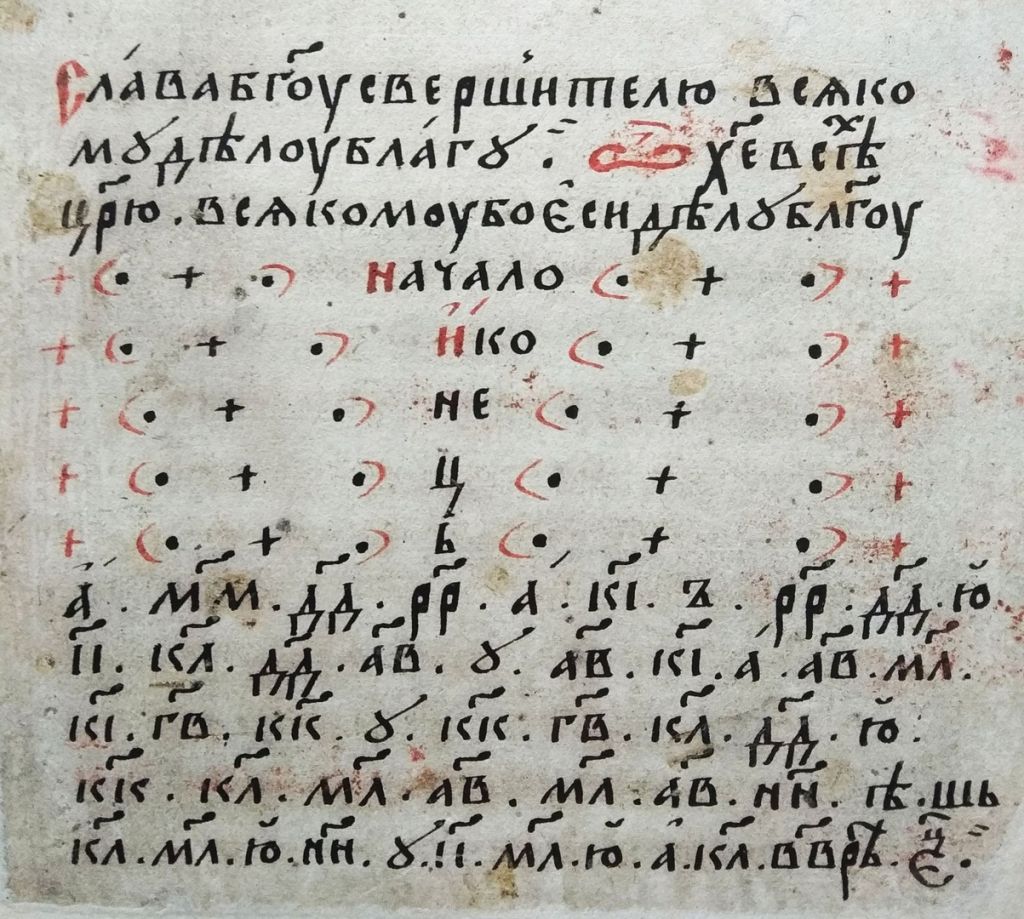 Сла́ва бг҃оу свершы́телю всяко
мꙋ дѣлоу бла́гꙋ : хе҃ всѣⷯ
цр҃ю . всякомоу боє сн дѣлꙋ бл҃гоу
+ ( • + • ) начало ( • + • ) +
+ ( • + • ) Ико ( • + • ) +
+ ( • + • ) не ( • + • ) +
+ ( • + • ) ц ( • + • ) +
+ ( • + • ) ь ( • + • ) +
а҆́ . м҃м . д҃д . р҃р . а́ . к҃і . ъ . р҃р . д҃д . ю̆
і҃і . к҃л . д҃д . а҃в . ꙋ . а҃в . к҃і . а́ . а҃в . м҃л .
к҃і . г҃в . к҃к . ꙋ . к҃к . г҃в . к҃л . д҃д . ю̆ .
к҃к . к҃л . м҃л . а҃в . м҃л . а҃в . н҃н . ѣ . шь
к҃л . м҃л . ю̆ . н҃н . ꙋ . і҃і . м҃л . ю̆ . а̂ . к҃л . в҃врѣ .